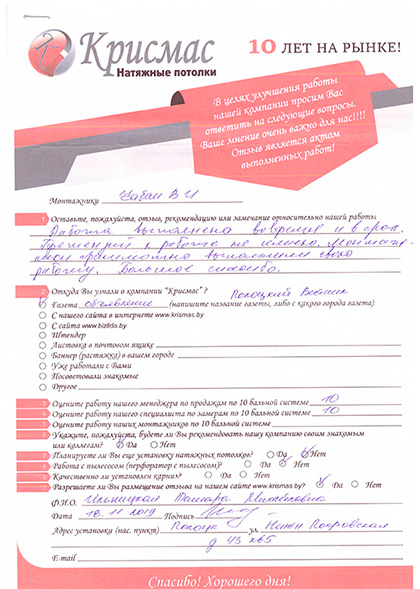 Крисмас
Натяжные потолки
10 ЛЕТ НА РЫНКЕ!
В целях улучшения работы
нашей компании просим Вас
ответить на следующие вопросы.
Ваше мнение очень важно для нас!!!!
Отзыв является актом
выполненных работ!
Монтажники Чабан В И
1 Оставьте, пожалуйста, отзыв, рекомендацию или замечание относительно нашей работы
Работа выполнена вовремя и в срок.
Претензий к работе не имею.
работу. Большое спасибо.
2 Откуда Вы узнали о компании "Крисмас"? Полоцкий Вестник
Газета объявление (напишите название газеты, либо с какого города газета)
С нашего сайта в интернете www.krismas.by
С сайта www.bizlida.by
Штендер
Листовка в почтовом ящике
Баннер (растяжка) в вашем городе
Уже работали с Вами
Посоветовали знакомые
Другое
3 Оцените работу нашего менеджера по продажам по 10 бальной системе 10
4 Оцените работу нашего специалиста по замерам по 10 бальной системе 10
5 Оцените работу наших монтажников по 10 бальной системе
6 Укажите, пожалуйста, будете ли Вы рекомендовать нашу компанию своим знакомым
или коллегам? Да Нет
7 Планируете ли Вы еще установку натяжных потолков? Да Нет
8 Работа с пылесосом (перфоратор с пылесосом)? Да Нет
9 Качественно ли установлен карниз? Да Нет
10 Разрешаете ли Вы размещение отзыва на нашем сайте www.krismas.by? Да Нет
Ф.И.О. Ильницкая Тамара
Дата 18.11 2019 Подпись
Адрес установки (нас. пункт) Полоцк ул. Нижне Покровская
д 43 кв5
E-mail
Спасибо! Хорошего дня!